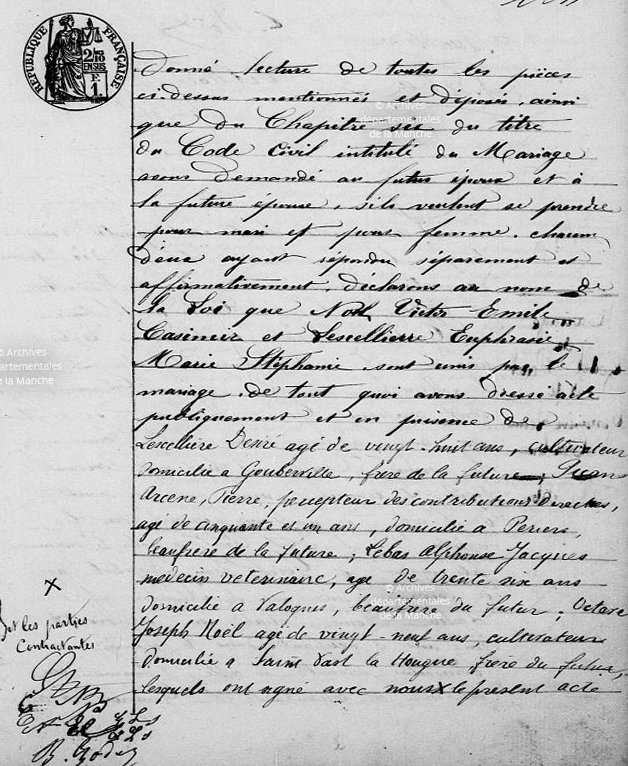 RÉPUBLIQUE FRANÇAISE
2/10 EN SUS
F
1.
Donné lecture de toutes les pièces
ci-dessus mentionnés et déposés, ainsi
que du Chapitre du titre
du Code Civil intitulé du Mariage
avons demandé au futur époux et à
la future épouse, s'ils veulent se prendre
pour mari et pour femme. chacun
d'eux ayant répondu séparement et
affirmativement, déclarons au nom de
la Loi que Noël Victor Emile
Casimir et Lescellierre Euphrasie
Marie Stéphanie sont unis par le
mariage. de tout quoi avons dressé acte
publiquement et en présence de,
Lescellière Désiré agé de vingt-huit ans, cultivateur
domicilié a Gouberville, frère de la future,
Arcène, Pierre, percepteur des contributions directes,
agé de cinquante et un ans, domicilié a Periers,
beaufrère de la future; Lebas Alphonse Jacques
médecin vétérinaire, agé de trente six ans
domicilié a Valognes, beaufrère du futur, Octave
Joseph Noël agé de vingt-neuf ans, cultivateur
domicilié a Saint Vast la Hougue frère du futur,
lesquels ont signé avec nous X le présent acte
X
et les parties
Contractantes
© Archives
départementales
de la Manche
© Archives
départementales
de la Manche
© Archives
départementales
de la Manche